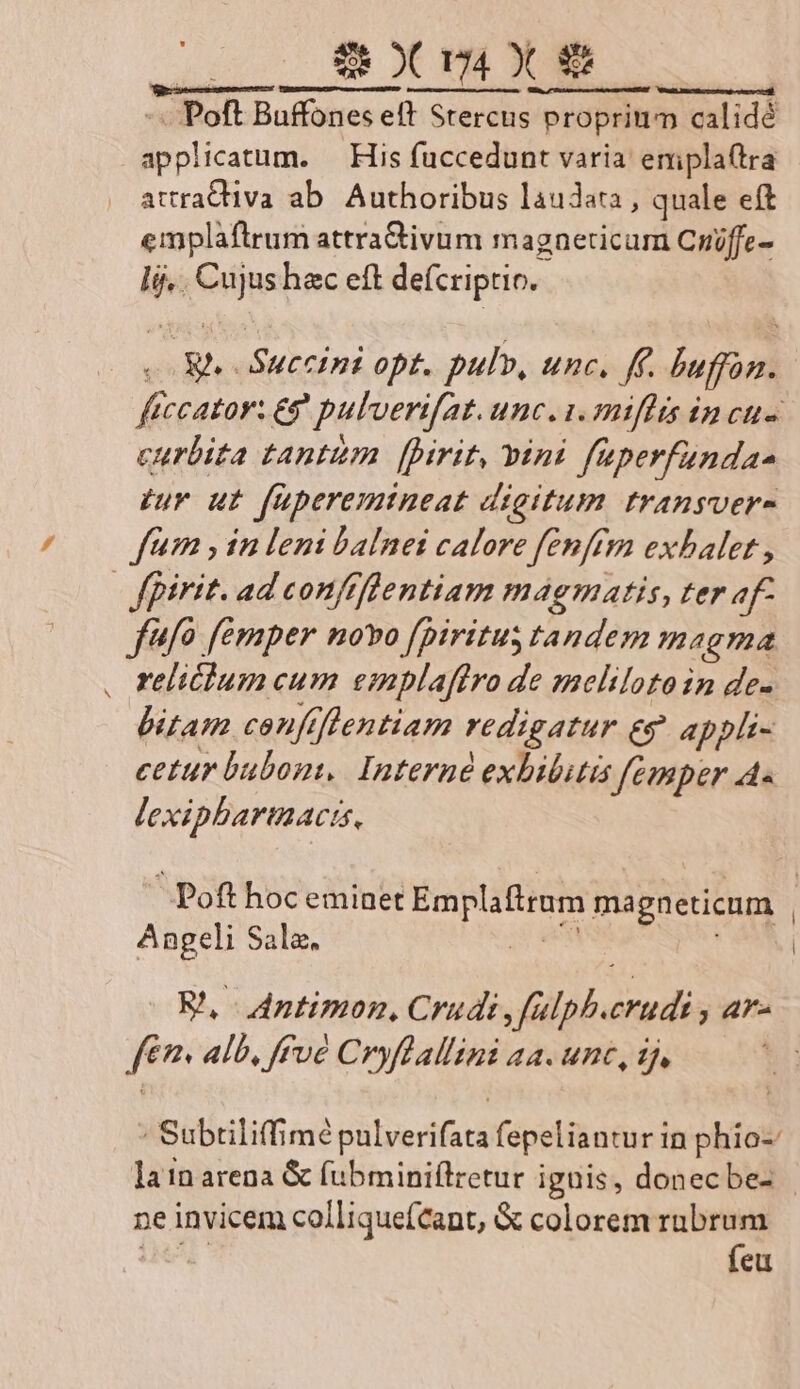 )( 174 )(
Poſt Buffones eſt Stercus proprium calidè
applicatum. His ſuccedunt varia emplaſtra
attractiva ab Authoribus laudata, quale eſt
emplaſtrum attractivum magneticum Cnöffe-
lij. Cujus hæc eſt deſcriptio.
℞. Succini opt. pulv, unc. ſſ. buffon.
ſiccator: & pulveriſat. unc. 1. miſtis in cu-
curbita tantùm ſpirit, vini ſuperfunda-
tur ut ſuperemineat digitum transver-
ſum, in leni balnei calore ſenſim exhalet,
ſpirit. ad conſiſtentiam magmatis, ter af-
fuſo ſemper novo ſpiritu; tandem magma
relictum cum emplaſtro de meliloto in de-
bitam conſiſtentiam redigatur & appli-
cetur buboni. Internè exhibitis ſemper A-
lexipharmacis.
Poſt hoc eminet Emplaſtrum magneticum
Angeli Salæ.
℞, Antimon, Crudi, ſulph. crudi, ar-
ſen. alb, ſive Cryſtallini aa. unc, ij,
Subtiliſſimè pulveriſata ſepeliantur in phio-
la in arena & ſubminiſtretur ignis, donec be-
ne invicem colliqueſcant, & colorem rubrum
ſeu